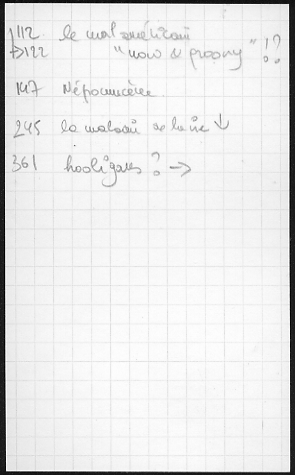 112 le mal américain
→122 "now & groony" !?
147 Népomucène
245 la maison de la
361 hooligans ? →